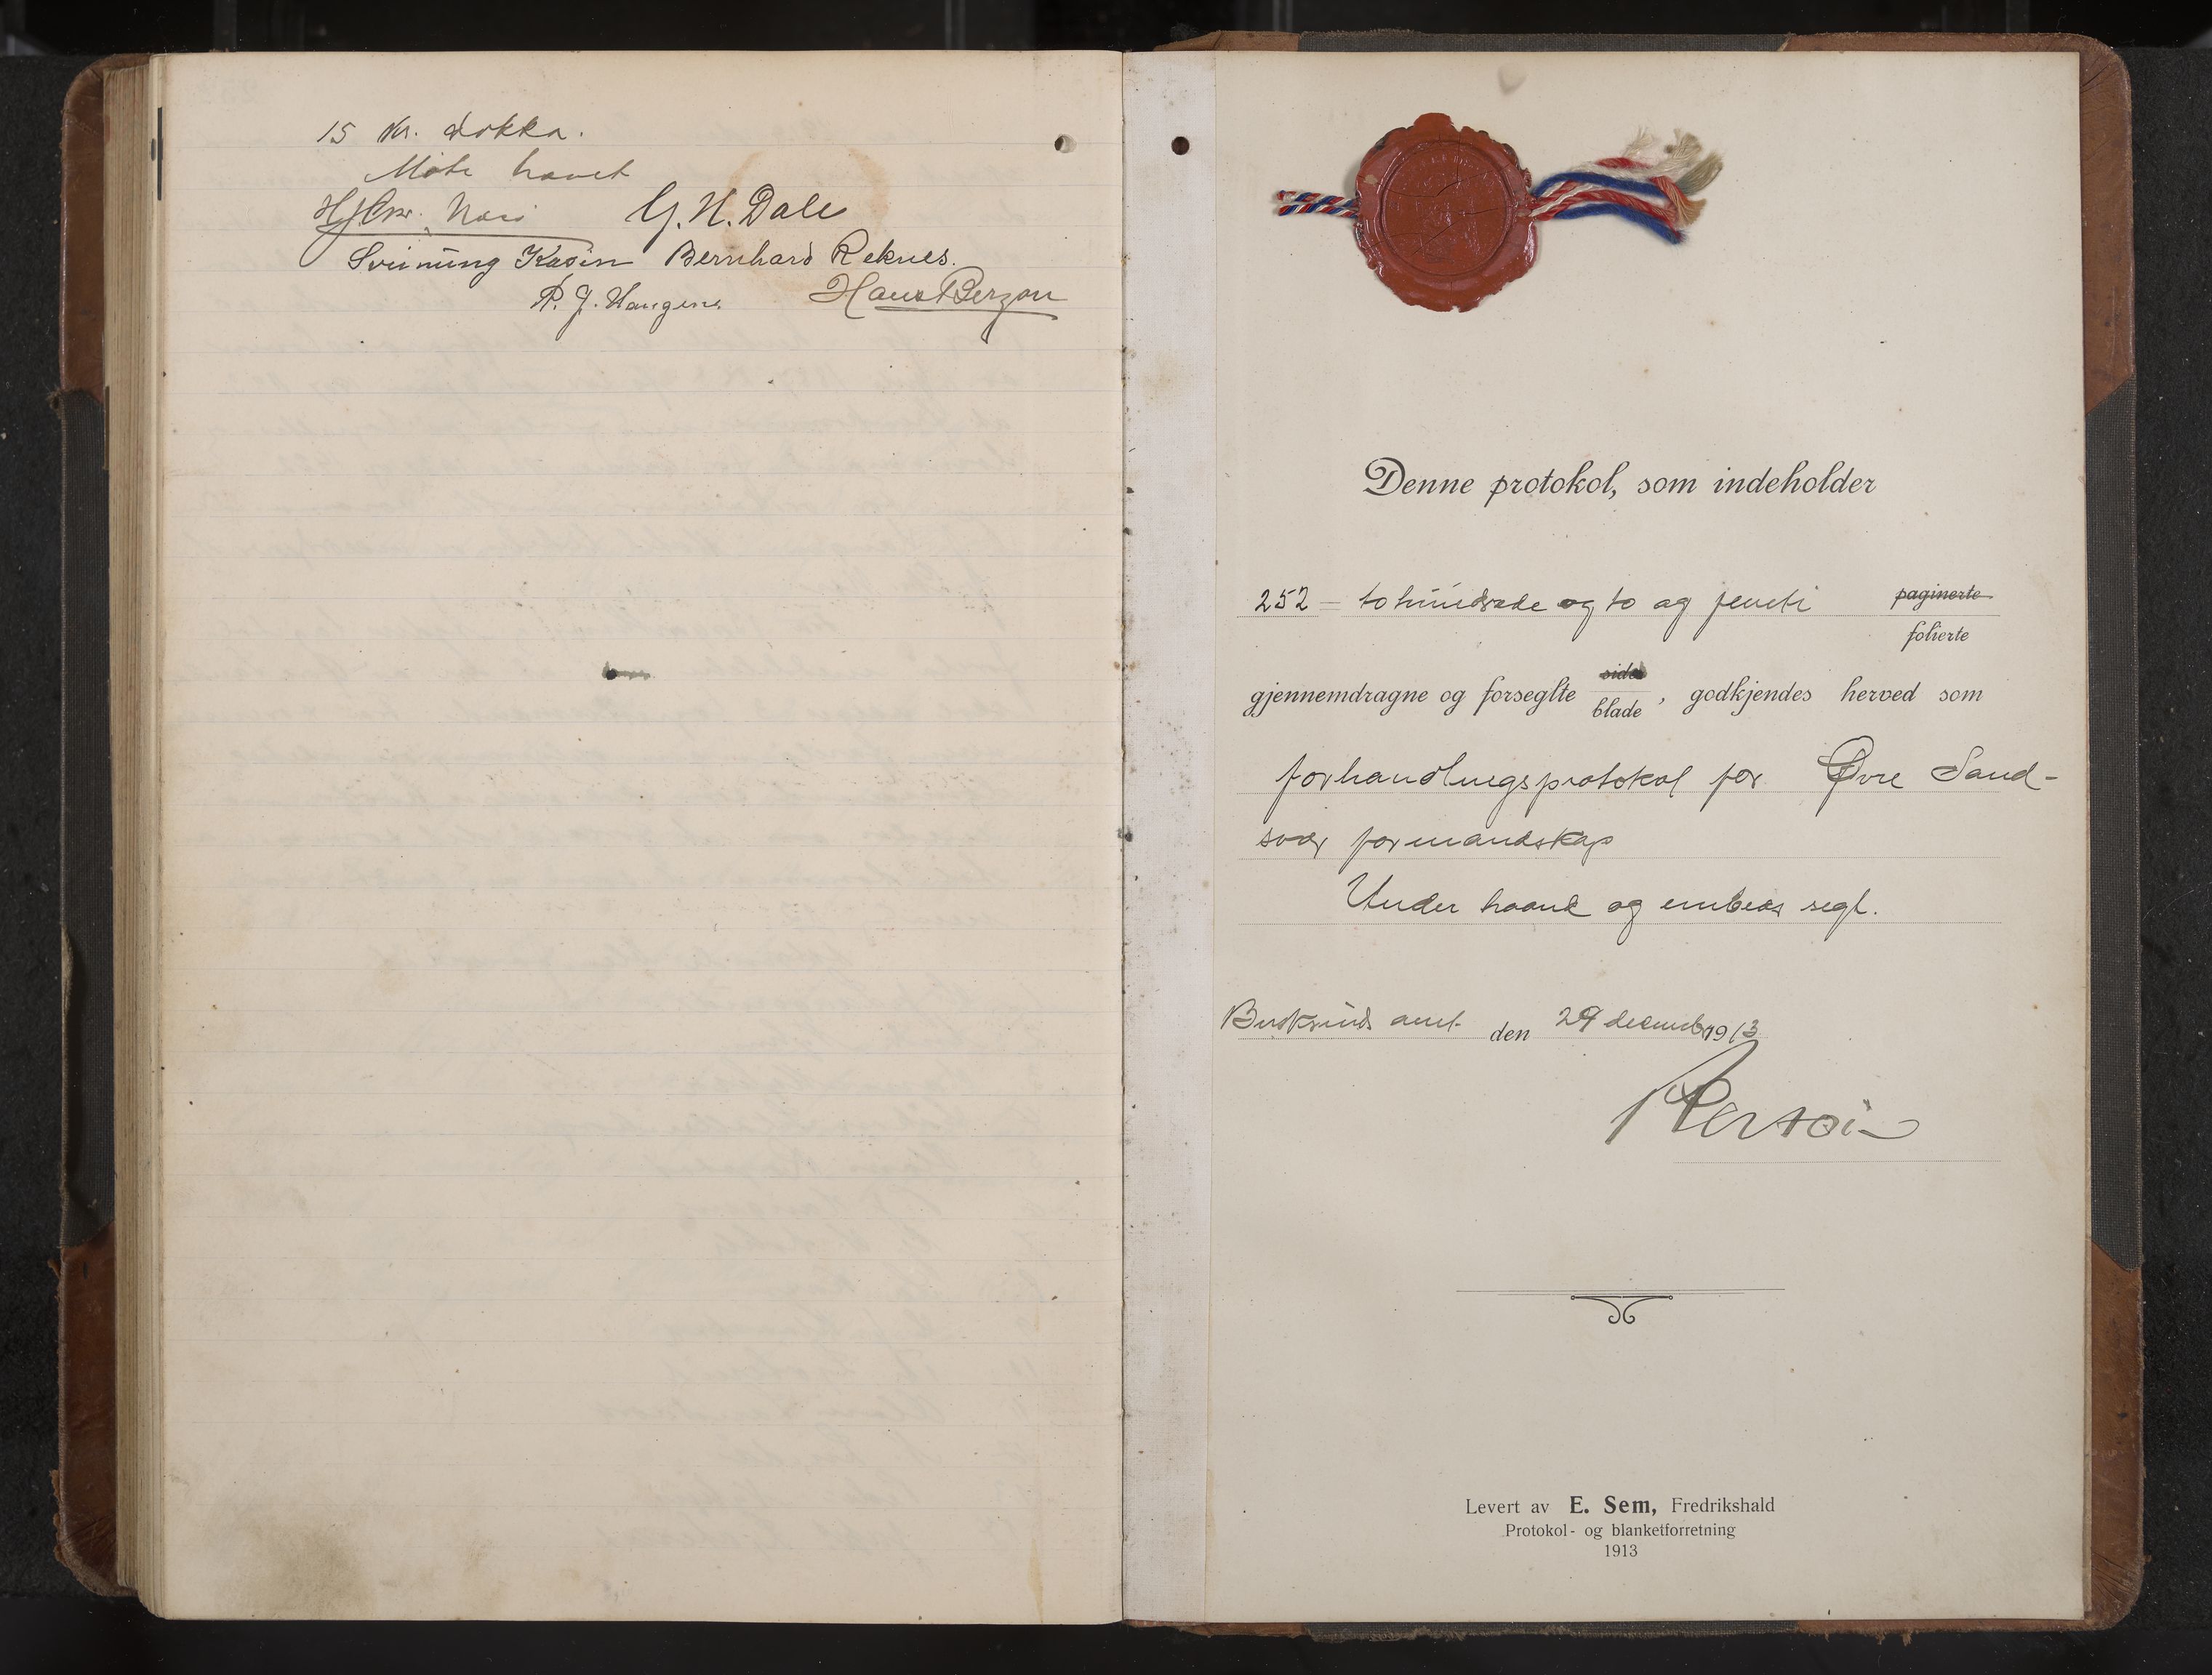 15 Kr. Dokka.
Møte hævet
G. H. Dale
Sveinung Kasin Bernhard Reknes.
P. J. Haugene. Hans Berzon
Denne protokol, som indeholder
252 = tohundrede og to og femti paginerte
folierte
gjennemdragne og forseglte sider
blade, godkjendes herved som
forhandlingsprotokol for Øvre Sand-
svær formandskap
Under haand og embeds segl.
Buskeruds amt den 29 decemb 1913
Levert av E. Sem, Fredrikshald
Protokol- og blanketforretning
1913